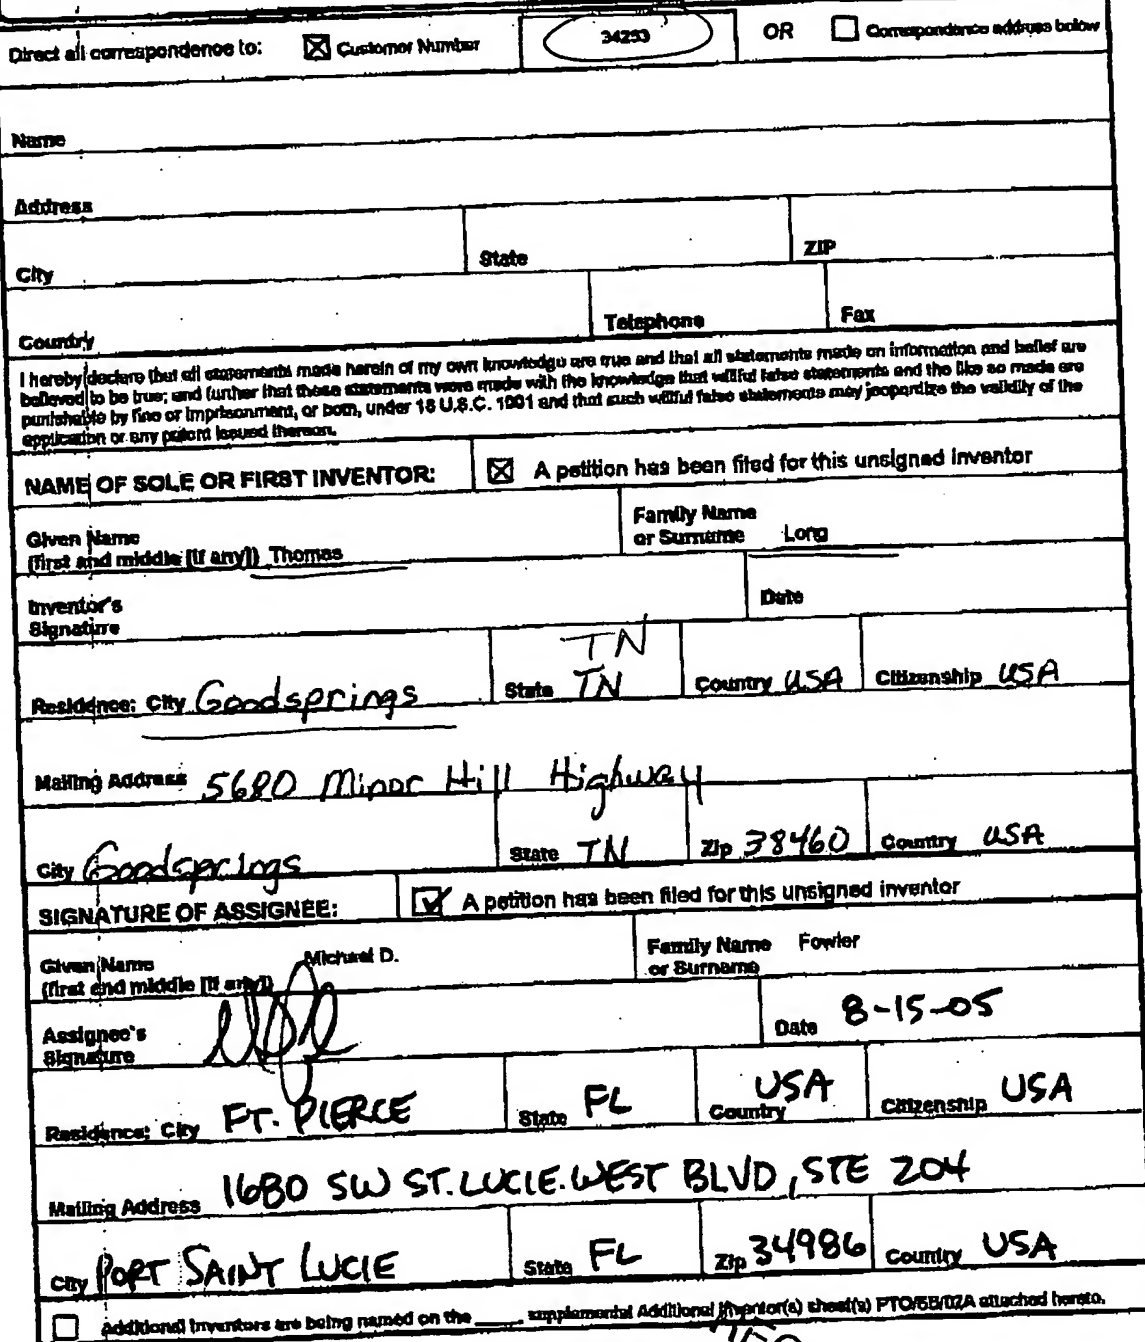 Direct all correspondence to: ☒ Customer Number 34253 OR ☐ Correspondence address below
Name
Address
City State ZIP
Country Telephone Fax
I hereby declare that all statements made herein of my own knowledge are true and that all statements made on information and belief are
believed to be true; and further that these statements were made with the knowledge that willful false statements and the like so made are
punishable by fine or imprisonment, or both, under 18 U.S.C. 1001 and that such willful false statements may jeopardize the validity of the
application or any patent issued thereon.
NAME OF SOLE OR FIRST INVENTOR: ☒ A petition has been filed for this unsigned inventor
Given Name
(first and middle [if any]) Thomas
Family Name
or Surname Long
Inventor's
Signature
Date
TN
Residence: City Goodsprings State TN Country USA Citizenship USA
Mailing Address 5680 Minor Hill Highway
City Goodsprings State TN Zip 38460 Country USA
SIGNATURE OF ASSIGNEE: ☑ A petition has been filed for this unsigned inventor
Given Name Michael D.
(first and middle [if any])
Family Name Fowler
or Surname
Assignee's
Signature
Date 8-15-05
Residence: City FT. PIERCE State FL Country USA Citizenship USA
Mailing Address 1680 SW ST. LUCIE.WEST BLVD, STE 204
City PORT SAINT LUCIE State FL Zip 34986 Country USA
☐ Additional inventors are being named on the ____ supplemental Additional Inventor(s) sheet(s) PTO/SB/02A attached hereto.